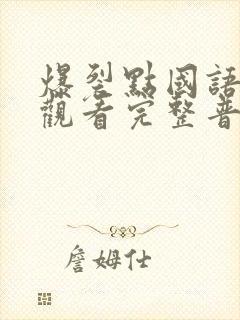 爆裂點國語
觀看完整普
詹姆仕